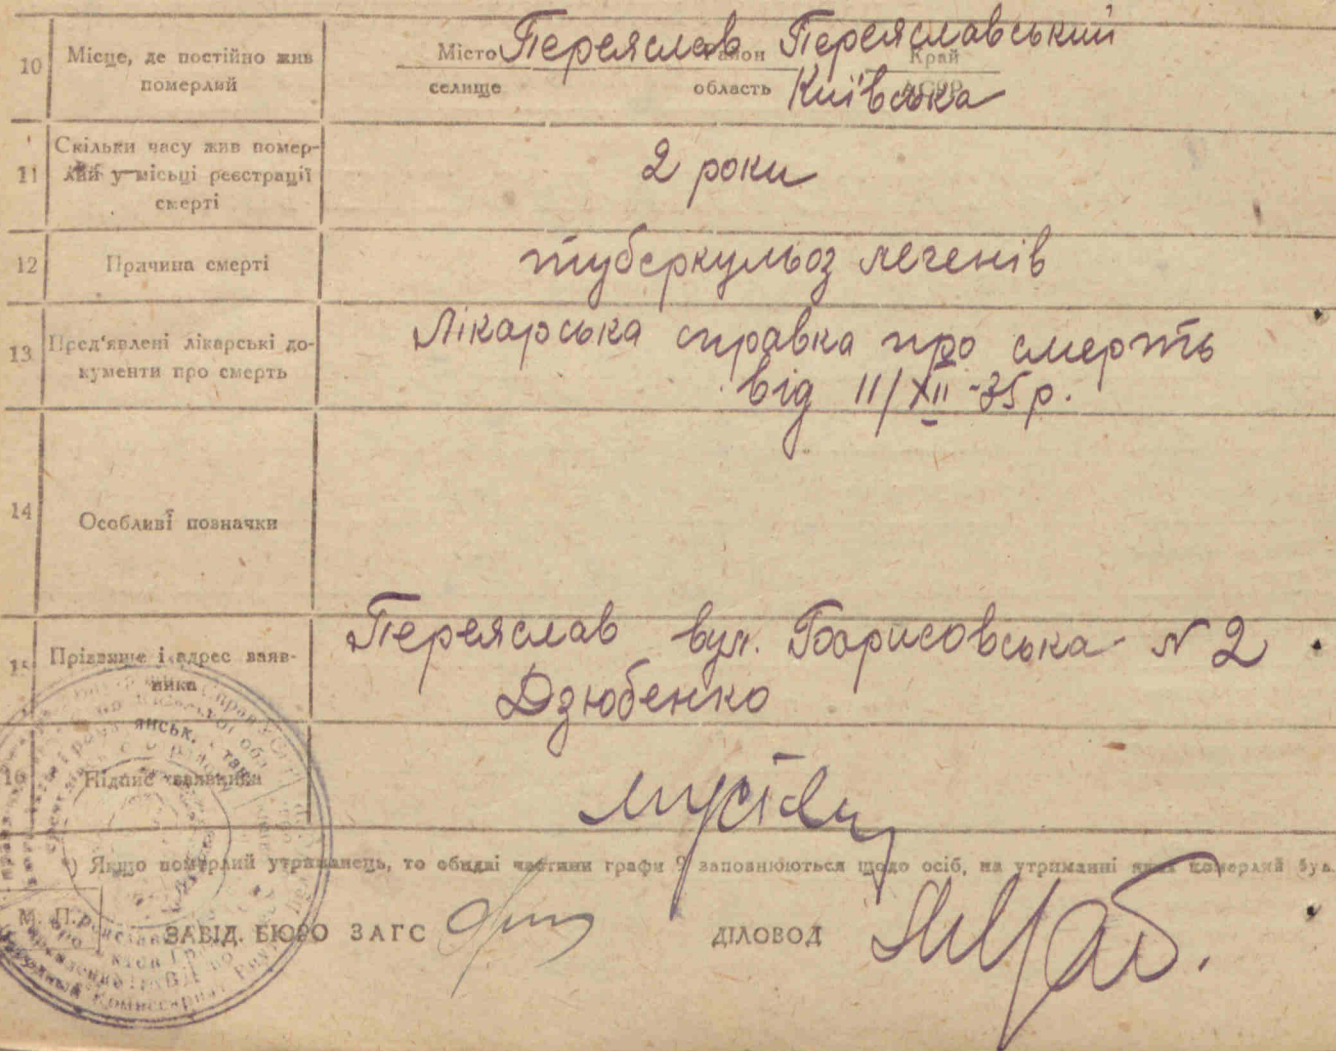 10 Місце, де постійно жив Місто Переяслав Район Переяславський Край
померлий селище область Київська АСРР
11 Скільки часу жив помер-
лий у місці реєстрації 2 роки
смерті
12 Причина смерті туберкульоз легенів
13 Пред'явлені лікарські до- Лікарська справка про смерть
кументи про смерть від 11/XII-35 р.
14 Особливі позначки
15 Прізвище і адрес заяв- Переяслав вул. Борисовська N 2
ника Дзюбенко
16 Підпис заявника
*) Якщо померлий утриманець, то обидві частини графи 9 заповнюються щодо осіб, на утриманні яких померлий був
М. П. ЗАВІД. БЮРО ЗАГС ДІЛОВОД